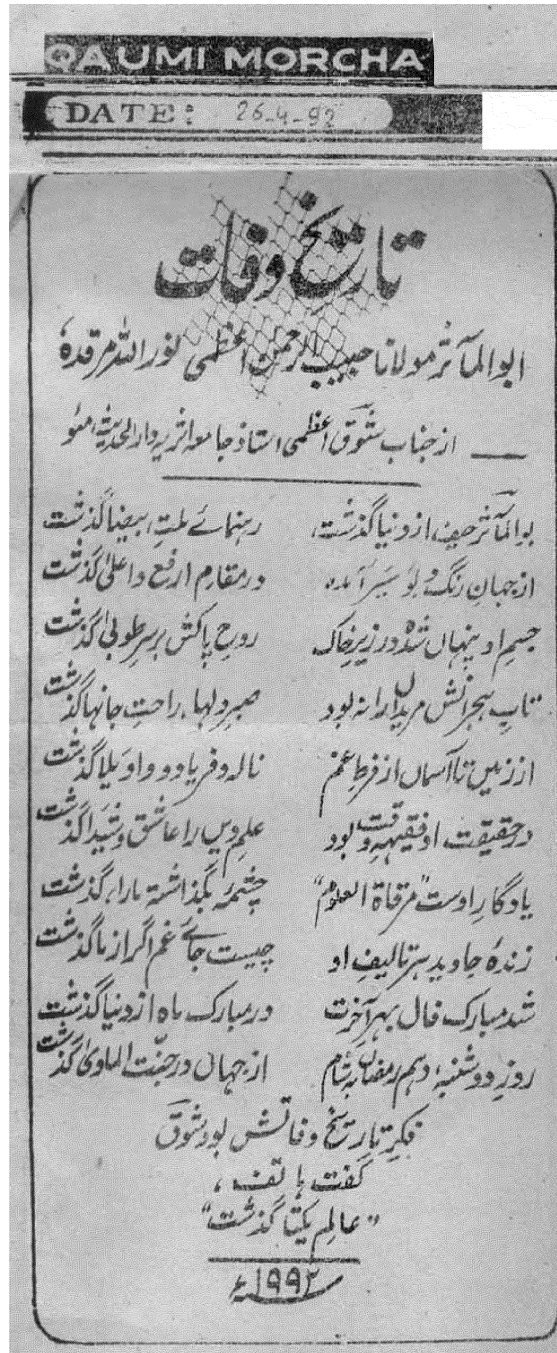 QAUMI MORCHA
DATE: 26-4-92
تاریخ وفات
ابوالمآثر مولانا حبیب الرحمن اعظمی نور اللہ مرقدہٗ
از جناب شوق اعظمی استاذ جامعہ اثریہ دارالحدیث مئو
بوالمآثر حیف از دنیا گذشت، رہنمائے ملتِ بیضا گذشت
از جہانِ رنگ و بو سیر آمدہ در مقام ارفع و اعلیٰ گذشت
جسمِ او پنہاں شدہ در زیرِ خاک روحِ پاکش بر سرِ طوبیٰ گذشت
تابِ ہجرانش مریداں را نہ بود صبرِ دلہا، راحتِ جانہا گذشت
از زمیں تا آسماں از فرطِ غم نالہ و فریاد و واویلا گذشت
در حقیقت او فقیہہِ وقت بود علمِ دیں را عاشق و شیدا گذشت
یادگارِ اوست "مرقاۃ العلوم" چشمۂ بگذاشتہ مارا، گذشت
زندہ جاوید ہر تالیفِ او چیست جائے غم اگر از ما گذشت
شد مبارک فال بہرِ آخرت در مبارک ماہ از دنیا گذشت
روزِ دوشنبہ، دہم رمضاں بہ شام از جہاں در جنّت الماویٰ گذشت
فکرِ تاریخ وفاتش بود شوقؔ
گفت ہاتف،
"عالمِ یکتا گذشت"
۱۹۹۲ء